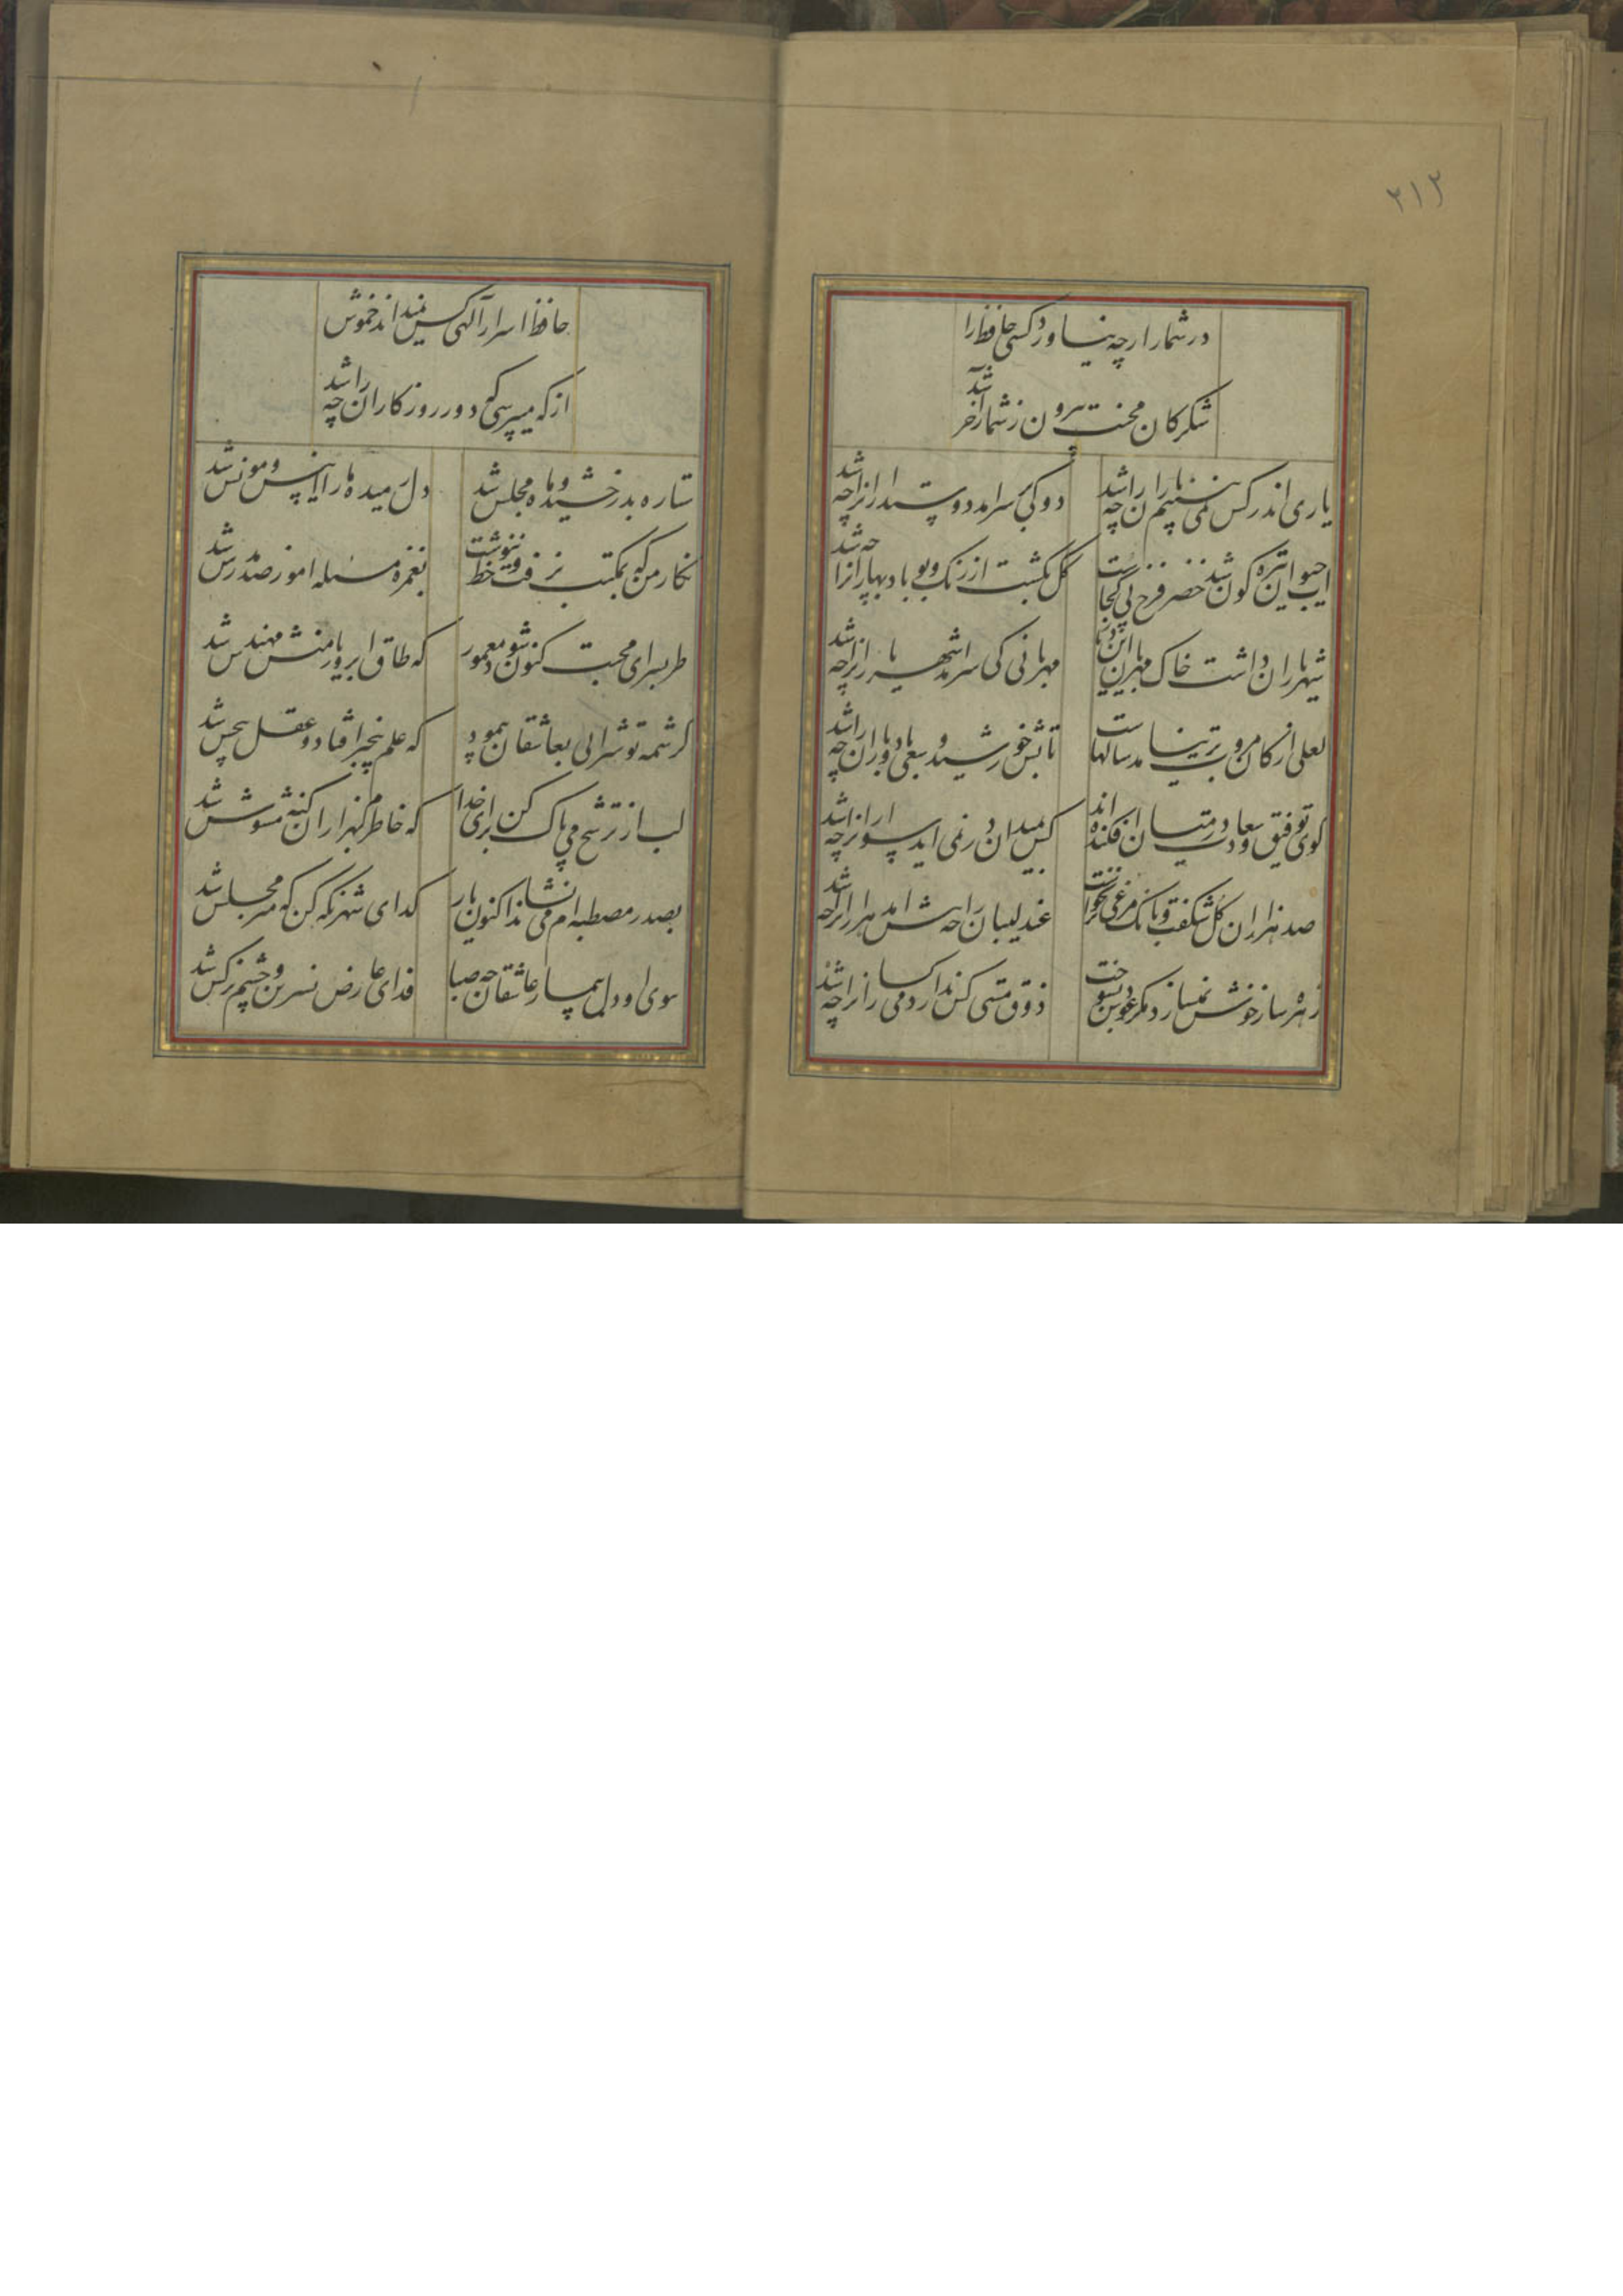 ۳۱۳
در شمار ارچه نیاورد کسی حافظ را
شکر کان محنت بیرون ز شمار اخر شد
یاری اندر کس نمی بینیم یارانرا چه شد
دوستی کی سر امد دوستدارانرا چه شد
اب حیوان تیره کون شد خضر فرخ پی کجاست
کل بکشت از رنک و بو باد بهارانرا چه شد
شهر یاران داشت خاک مهربانان این دیار
مهربانی کی سر امد شهریارانرا چه شد
لعلی از کان مروت برنیامد سالهاست
تابش خورشید و سعی باد و بارانرا چه شد
کوی توفیق و سعادت در میان افکنده اند
کس بمیدان در نمی اید سوارانرا چه شد
صد هزاران کل شکفت و بانک مرغی برنخواست
عندلیبان را چه شد امد هزارانرا چه شد
زهره ساز خوش نمیسازد مکر عودش بسوخت
کس ندارد ذوق مستی میکسارانرا چه شد
حافظ اسرار الهی کس نمیداند خموش
از که میپرسی که دور روزکارانرا چه شد
ستاره بدرخشید و ماه مجلس شد
دل رمیده ما را انیس و مونس شد
نکار من که بمکتب نرفت و خط ننوشت
بغمزه مسئله اموز صد مدرس شد
طربسرای محبت کنون شود معمور
که طاق ابروی یار منش مهندس شد
کرشمه تو شرابی بعاشقان پیمود
که علم بیخبر افتاد و عقل بیحس شد
لب از ترشح می پاک کن برای خدا
که خاطرم بهزاران کنه مشوش شد
بصدر مصطبه ام می نشاند اکنون یار
کدای شهر نکه کن که میر مجلس شد
ببوی او دل بیمار عاشقان چو صبا
فدای عارض نسرین و چشم نرکس شد